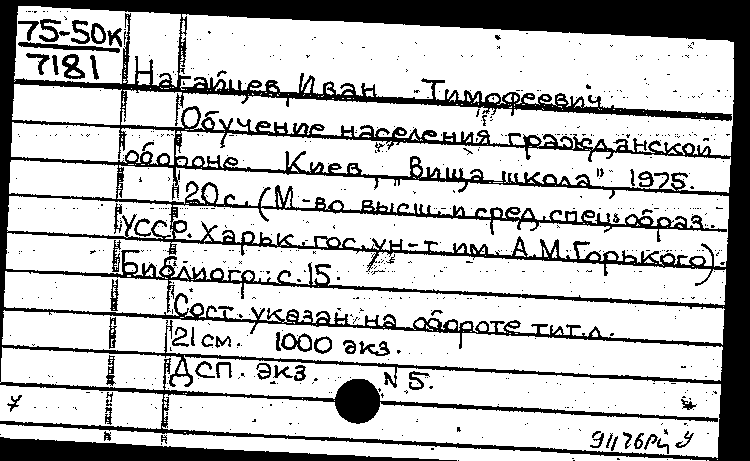 75-50к
7181
Нагайцев, Иван Тимофеевич.
Обучение населения гражданской
обороне. Киев, "Вища школа", 1975.
20 с. (М-во высш. и сред. спец. образ.
УССР. Харьк. гос. ун-т им. А.М.Горького).
Библиогр.: с. 15.
Сост. указан на обороте тит. л.
21 см. 1000 экз.
ДСП. экз. N 5.